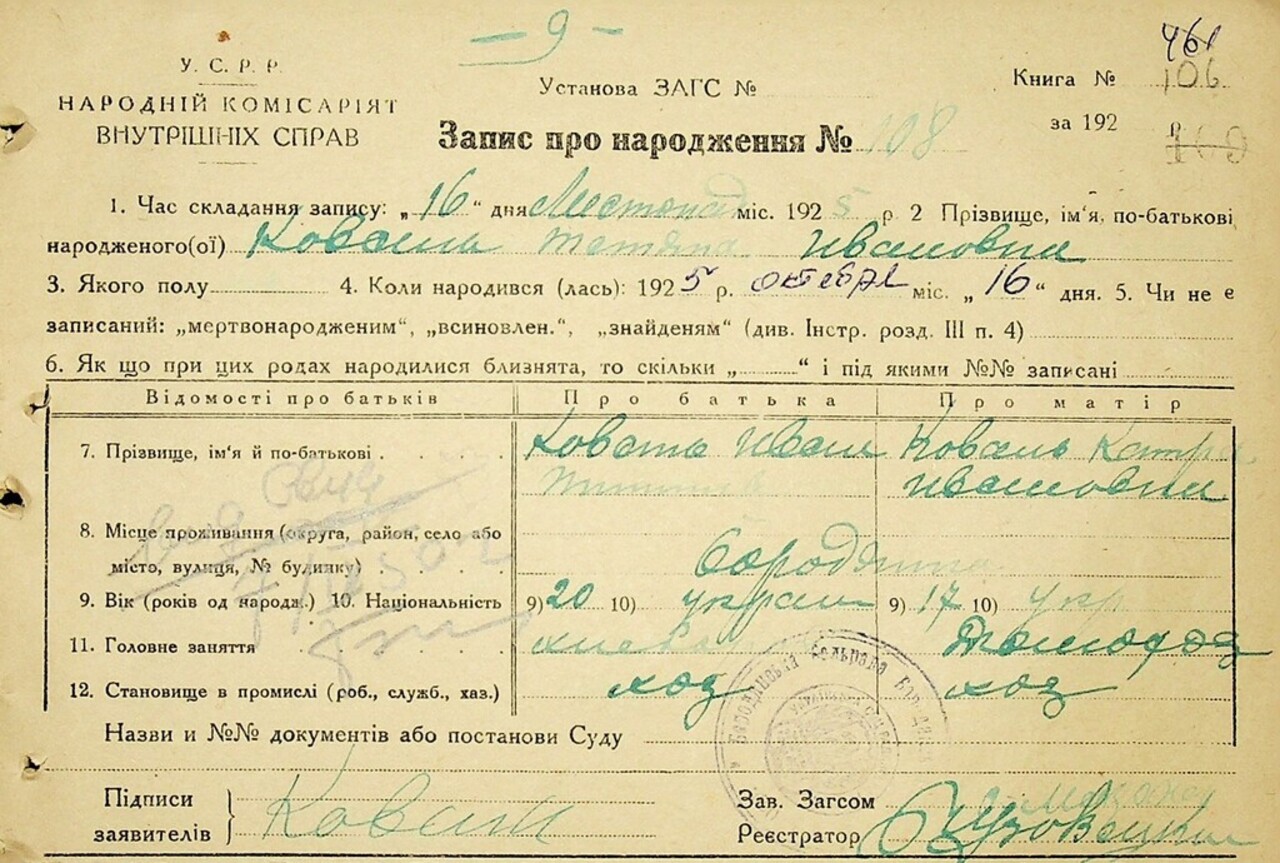 — 9 —
461
У. С. Р. Р.
НАРОДНІЙ КОМІСАРІЯТ
ВНУТРІШНІХ СПРАВ
Установа ЗАГС №
Книга № 106
за 192 р.
Запис про народження № 108
1. Час складання запису: „16“ дня Листопад міс. 1925 р 2 Прізвище, ім'я, по-батькові
народженого(ої) Коваль Тетяна Ивановна
3. Якого полу 4. Коли народився (лась): 1925 р. октебре міс. „16“ дня. 5. Чи не є
записаний: „мертвонародженим“, „всиновлен.“, „знайденям“ (див. Інстр. розд. III п. 4)
6. Як що при цих родах народилися близнята, то скільки „ “ і під якими №№ записані
Відомості про батьків Про батька Про матір
7. Прізвище, ім'я й по-батькові Коваль Иван Коваль Катря
Ивановна
8. Місце проживання (округа, район, село або
місто, вулиця, № будинку) Бородянка
9. Вік (років од народж.) 10. Національність 9) 20 10) украин 9) 17 10) укр
11. Головне заняття
12. Становище в промислі (роб., служб., хаз.) хоз хоз
Назви и №№ документів або постанови Суду
Підписи
заявителів Коваль
Зав. Загсом
Реєстратор